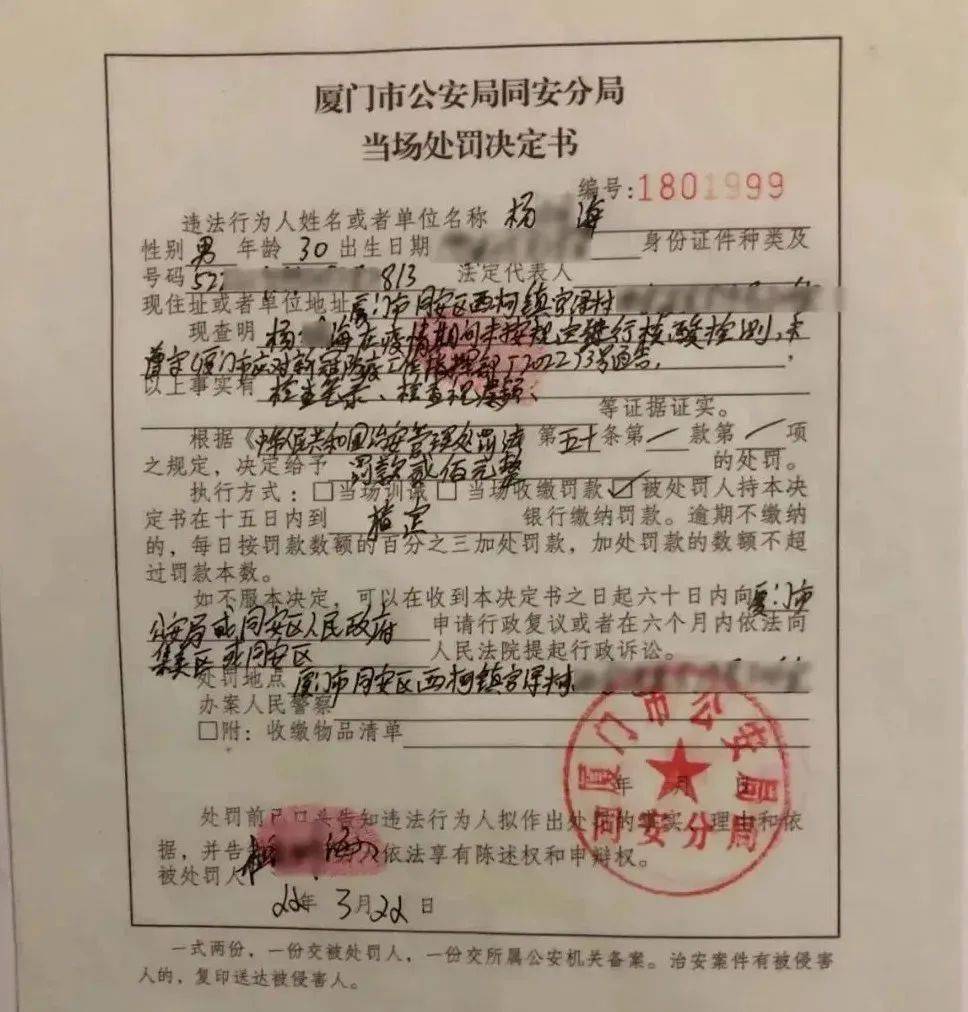 厦门市公安局同安分局
当场处罚决定书
编号:1801999
违法行为人姓名或者单位名称 杨 海
性别 男 年龄 30 出生日期 身份证件种类及
号码 52 813 法定代表人
现住址或者单位地址 厦门市同安区西柯镇官浔村
现查明 杨 海在疫情期间未按规定进行核酸检测,未
遵守《厦门市应对新冠防疫工作指挥部》2022 号通告.
以上事实有 检查笔录、检查视频、
等证据证实。
根据《中华人民共和国治安管理处罚法 第五十条第一款第一项
之规定,决定给予 罚款贰佰元整 的处罚。
执行方式:□当场训诫□ 当场收缴罚款☑被处罚人持本决
定书在十五日内到 指定 银行缴纳罚款。逾期不缴纳
的,每日按罚款数额的百分之三加处罚款,加处罚款的数额不超
过罚款本数。
如不服本决定,可以在收到本决定书之日起六十日内向厦门市
公安局或同安区人民政府 申请行政复议或者在六个月内依法向
集美区或同安区 人民法院提起行政诉讼。
处罚地点 厦门市同安区西柯镇官浔村
办案人民警察
□附:收缴物品清单
年 月 日
厦门市公安局
同安分局
处罚前已口头告知违法行为人拟作出处罚的事实、理由和依
据,并告 人依法享有陈述权和申辩权。
被处罚人 杨 海
22年 3月22日
一式两份,一份交被处罚人,一份交所属公安机关备案。治安案件有被侵害
人的,复印送达被侵害人。